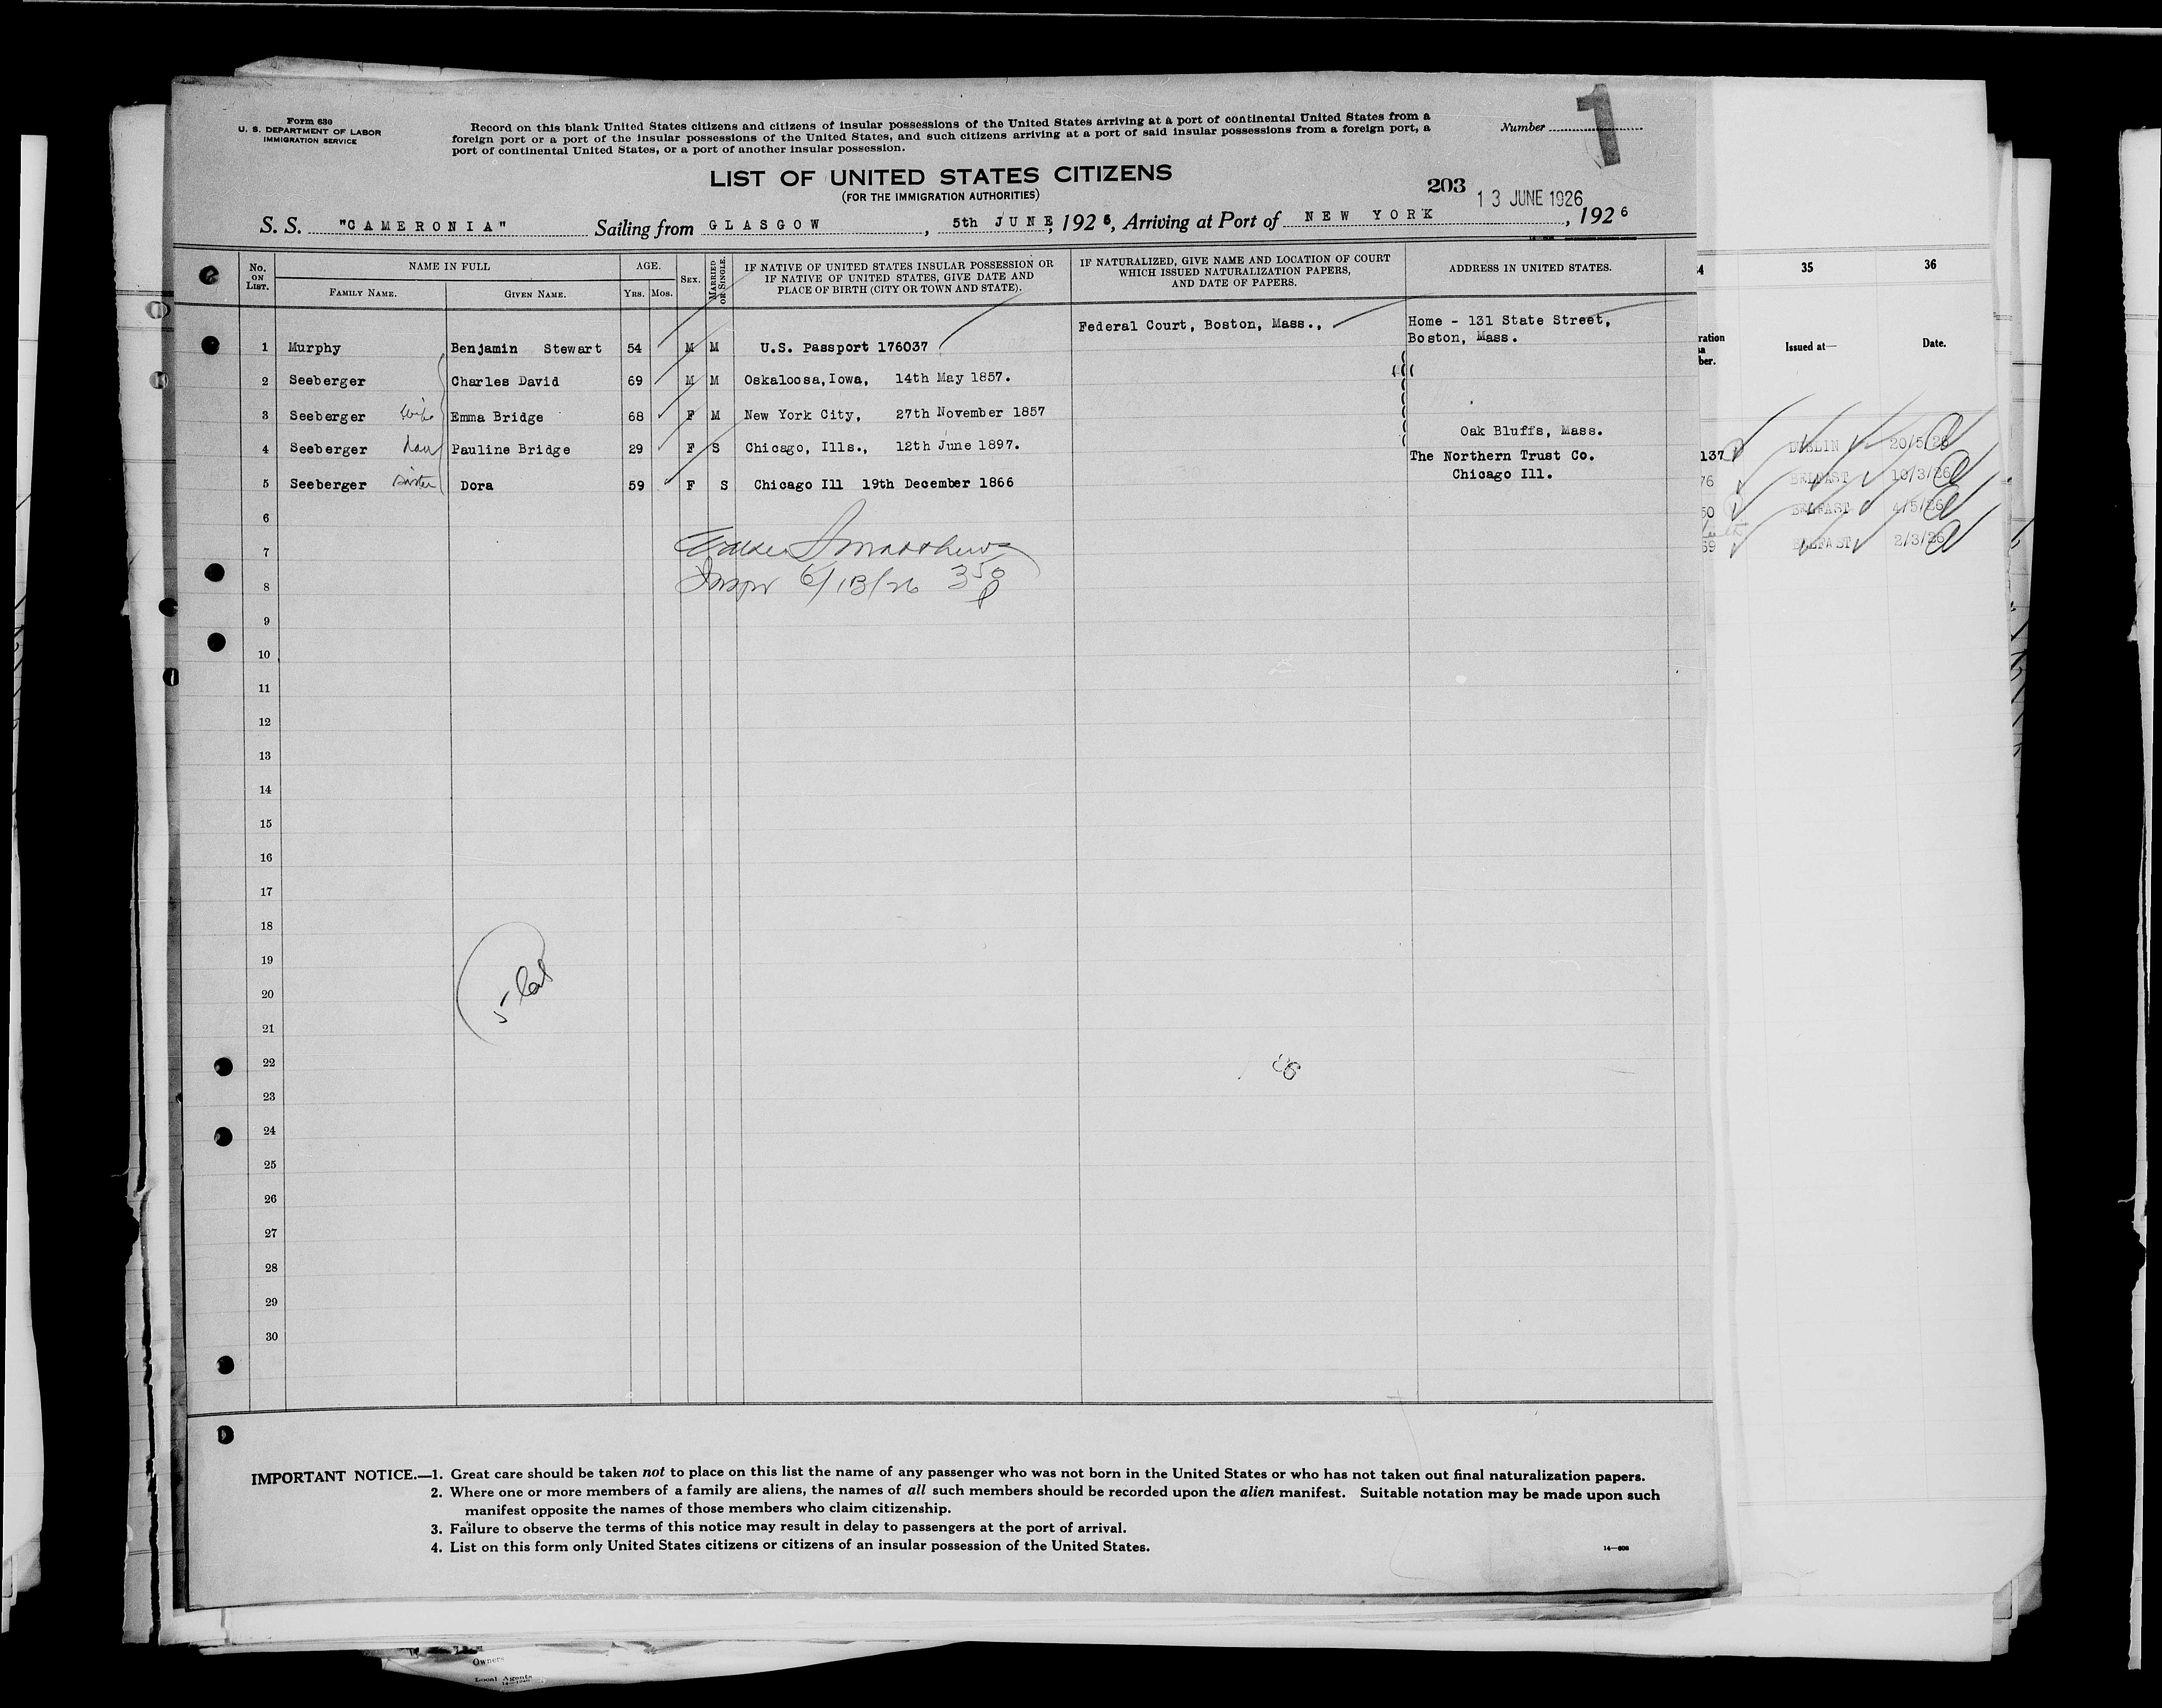 Form 630
U. S. DEPARTMENT OF LABOR
IMMIGRATION SERVICE
Record on this blank United States citizens and citizens of insular possessions of the United States arriving at a port of continental United States from a
foreign port or a port of the insular possessions of the United States, and such citizens arriving at a port of said insular possessions from a foreign port, a
port of continental United States, or a port of another insular possession.
Number 1
LIST OF UNITED STATES CITIZENS
(FOR THE IMMIGRATION AUTHORITIES)
203
13 JUNE 1926
S. S. "CAMERONIA" Sailing from GLASGOW, 5th JUNE, 1926, Arriving at Port of NEW YORK, 1926
No. ON LIST. NAME IN FULL AGE. SEX. MARRIED OR SINGLE. IF NATIVE OF UNITED STATES INSULAR POSSESSION OR IF NATIVE OF UNITED STATES, GIVE DATE AND PLACE OF BIRTH (CITY OR TOWN AND STATE). IF NATURALIZED, GIVE NAME AND LOCATION OF COURT WHICH ISSUED NATURALIZATION PAPERS, AND DATE OF PAPERS. ADDRESS IN UNITED STATES.
FAMILY NAME. GIVEN NAME. YRS. MOS.
Federal Court, Boston, Mass., Home - 131 State Street,
1 Murphy Benjamin Stewart 54 M M U.S. Passport 176037 Boston, Mass.
2 Seeberger Charles David 69 M M Oskaloosa, Iowa, 14th May 1857.
3 Seeberger wife Emma Bridge 68 F M New York City, 27th November 1857
Oak Bluffs, Mass.
4 Seeberger dau Pauline Bridge 29 F S Chicago, Ills., 12th June 1897.
The Northern Trust Co.
5 Seeberger sister Dora 59 F S Chicago Ill 19th December 1866 Chicago Ill.
6
7
Inspr 6/13/26 350
8
9
10
11
12
13
14
15
16
17
18
19
20
21
22
23
24
25
26
27
28
29
30
IMPORTANT NOTICE.—1. Great care should be taken not to place on this list the name of any passenger who was not born in the United States or who has not taken out final naturalization papers.
2. Where one or more members of a family are aliens, the names of all such members should be recorded upon the alien manifest. Suitable notation may be made upon such
manifest opposite the names of those members who claim citizenship.
3. Failure to observe the terms of this notice may result in delay to passengers at the port of arrival.
4. List on this form only United States citizens or citizens of an insular possession of the United States.
35 36
Issued at— Date.
137 DUBLIN 20/5/26
76 BELFAST 10/3/26
50 BELFAST 4/5/26
59 BELFAST 2/3/26
Owners
Local Agents